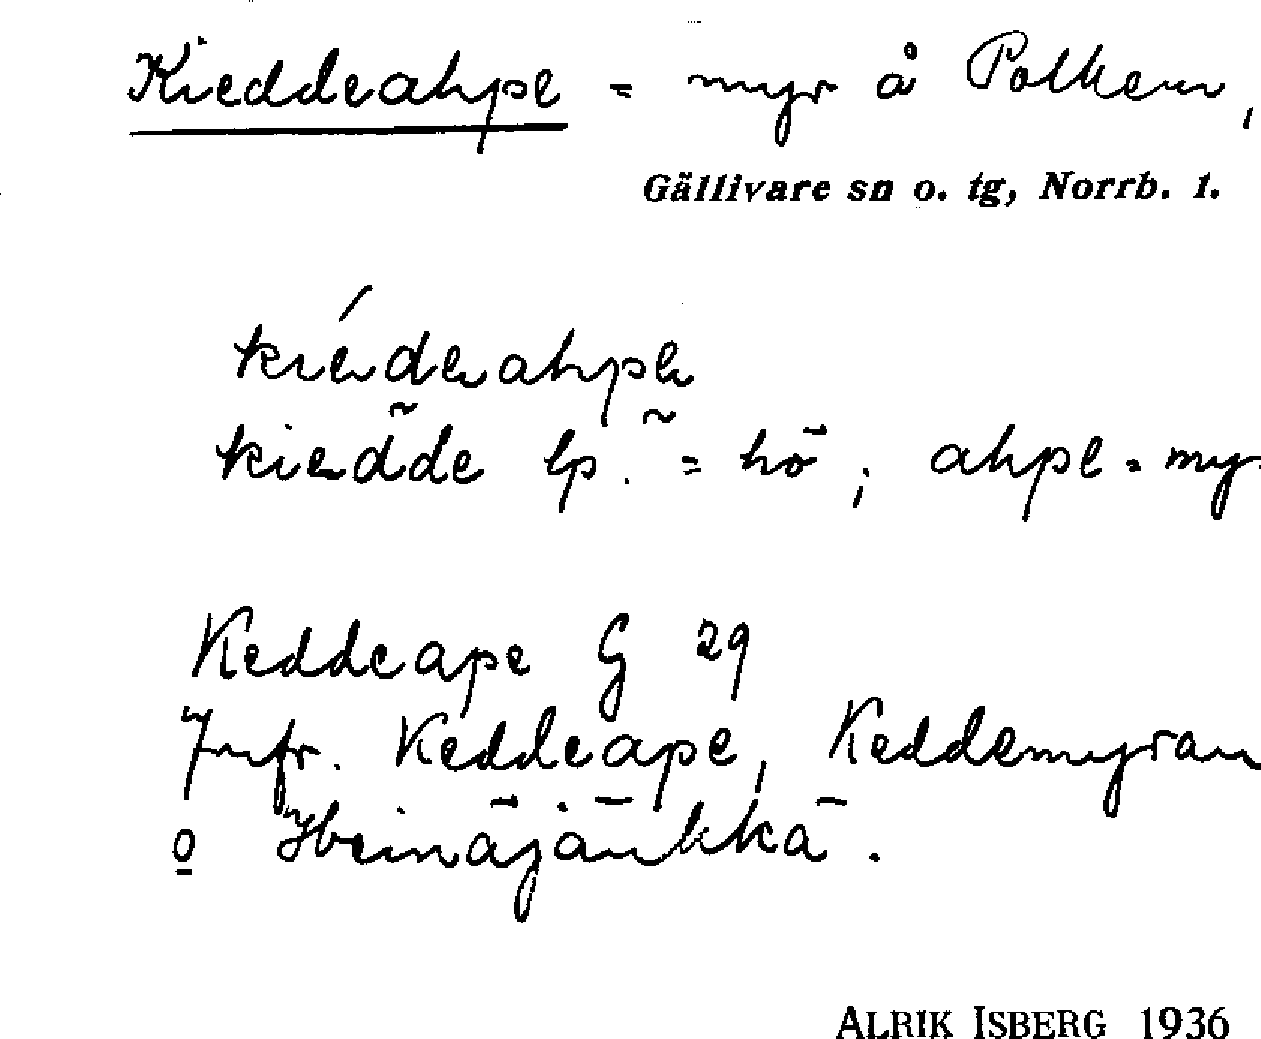 Kieddeahpe = myr å Polkem,
Gällivare sn o. tg, Norrb. l.
kiédeahpe
kiedde lp. = hö; ahpe = myr
Keddeape G 29
Jmfr. Keddeape, Keddemyran
o Heinäjänkkä.
ALRIK ISBERG 1936